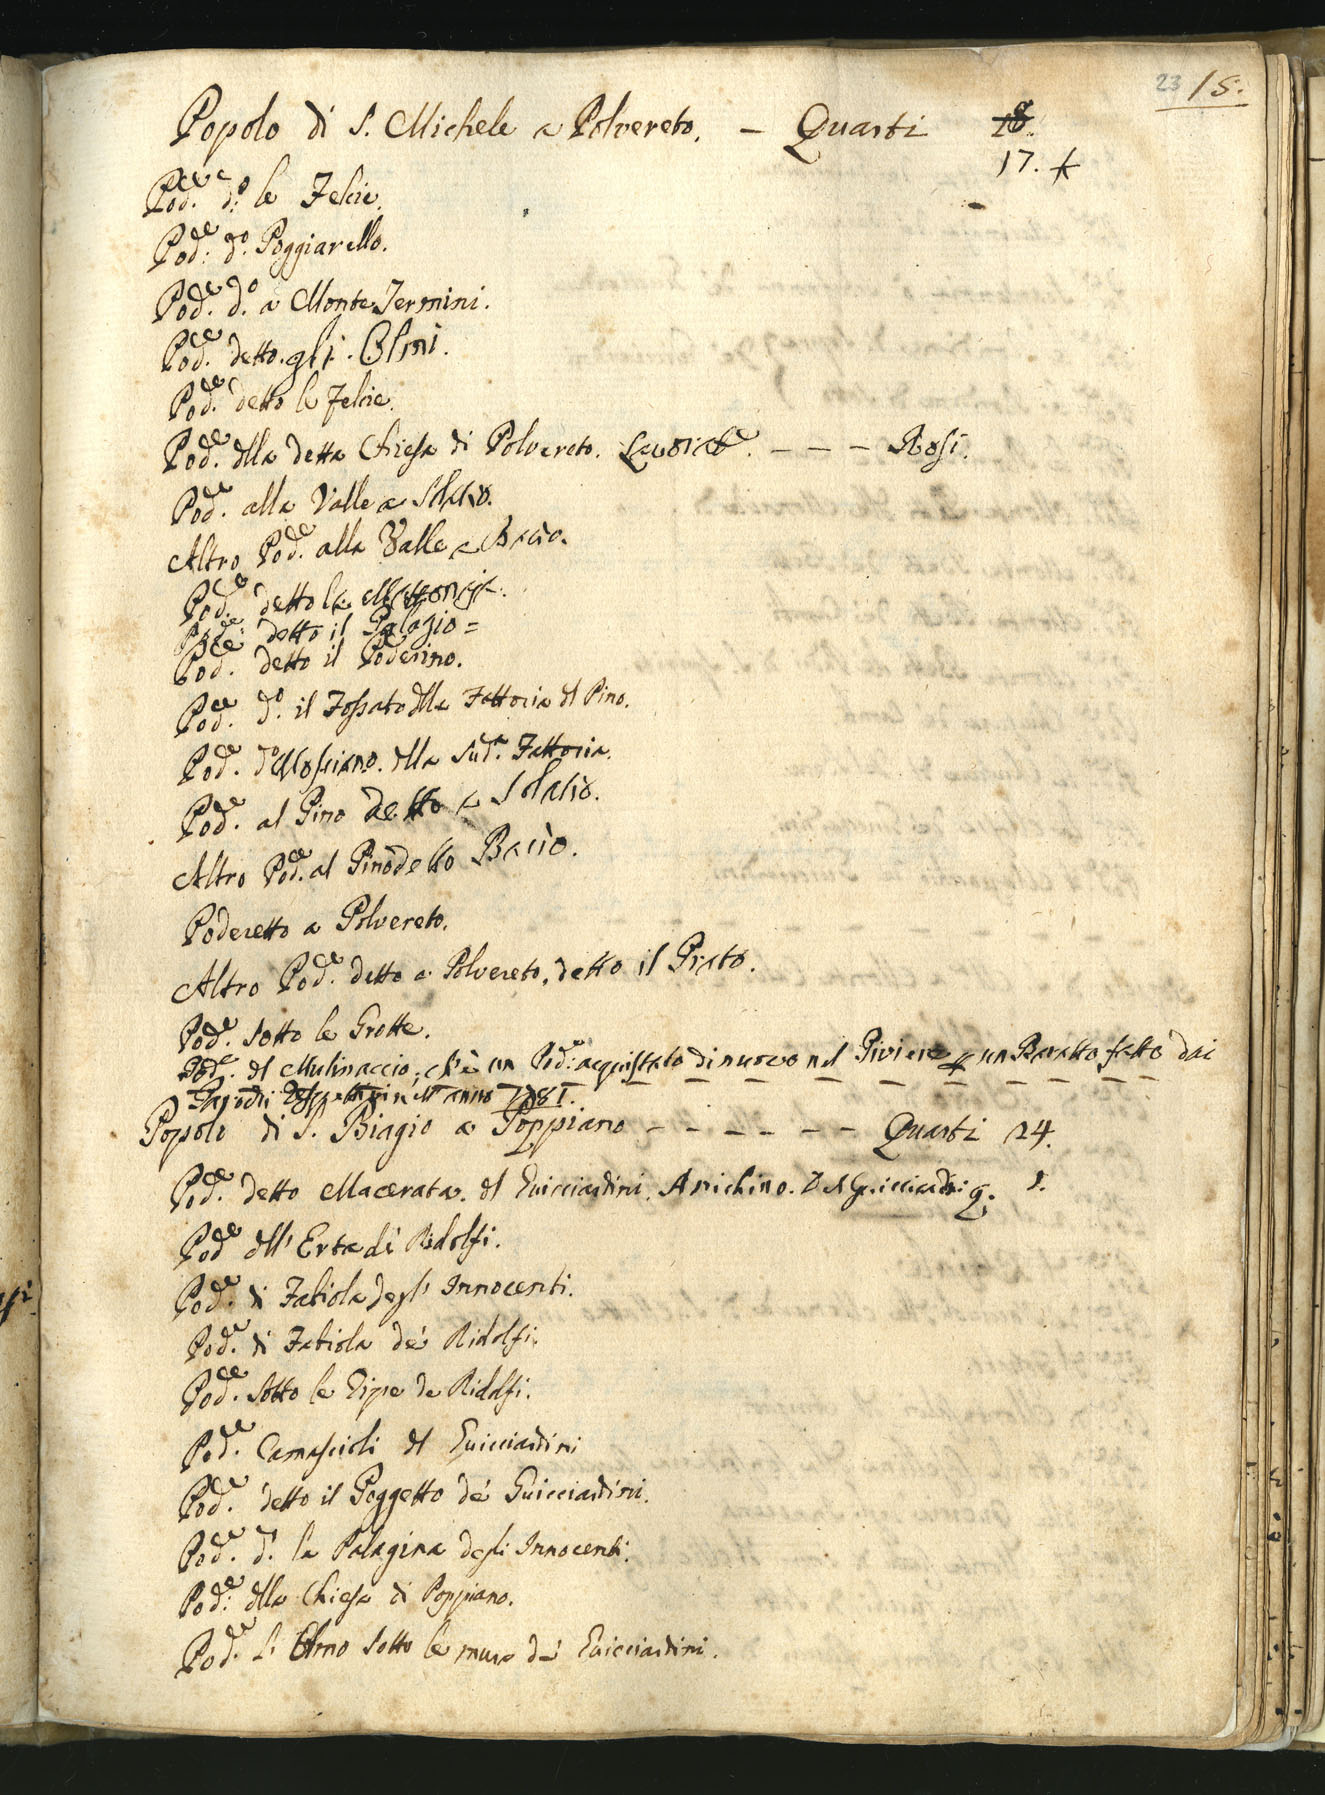 23 15.
Popolo di S. Michele a Polvereto. – Quarti 18.
17.
Pod.e d.o le Felcie.
Pod.e d.o Poggiarello.
Pod.e d.o a Monte Termini.
Pod.e detto gli Olmi.
Pod.e detto le Felcie.
Pod.e dlla detta Chiesa di Polvereto. – – – Rosi.
Pod.e alla Valle a Solatio.
Altro Pod.e alla Valle a Bacìo.
Pod.e detto la
Pod.e detto il Palazio =
Pod.e detto il Poderino.
Pod.e d.o il Fossato dlla Fattoria dl Pino.
Pod.e d.o Mosciano dlla Sud.a Fattoria.
Pod.e al Pino detto a Solatìo.
Altro Pod.e al Pino detto Bacìo.
Poderetto a Polvereto.
Altro Pod.e detto a Polvereto, detto il Prato.
Pod.e Sotto le Grotte.
Pod.e dl Mulinaccio, ch'è un Pod.e acquistato di nuovo nel Piviere un Baratto fatto dai
anno 1781.
Popolo di S. Biagio a Poppiano – – – – – – Quarti 24.
Pod.e detto Macerata dl Guicciardini. Anichino. Del Guicciardini
Pod.e dll' Erta di Ridolfi.
Pod.e di Fabiola degl' Innocenti.
Pod.e di Fabiola de' Ridolfi.
Pod.e Sotto le Ripe de Ridolfi.
Pod.e Camascioli dl Guicciardini
Pod.e detto il Poggetto de' Guicciardini.
Pod.e d.o la Palagina degli Innocenti.
Pod.e dlla Chiesa di Poppiano.
Pod.e l' Olmo Sotto le mura de' Guicciardini.